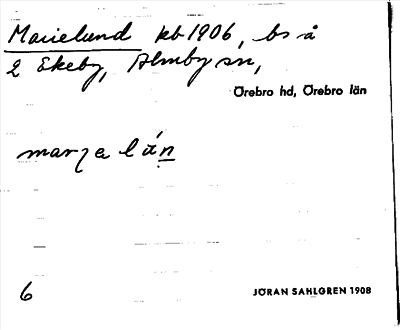 Marielund kb 1906, bs å
2 Ekeby, Almby sn,
Örebro hd, Örebro län
marʒelún̩
6
JÖRAN SAHLGREN 1908